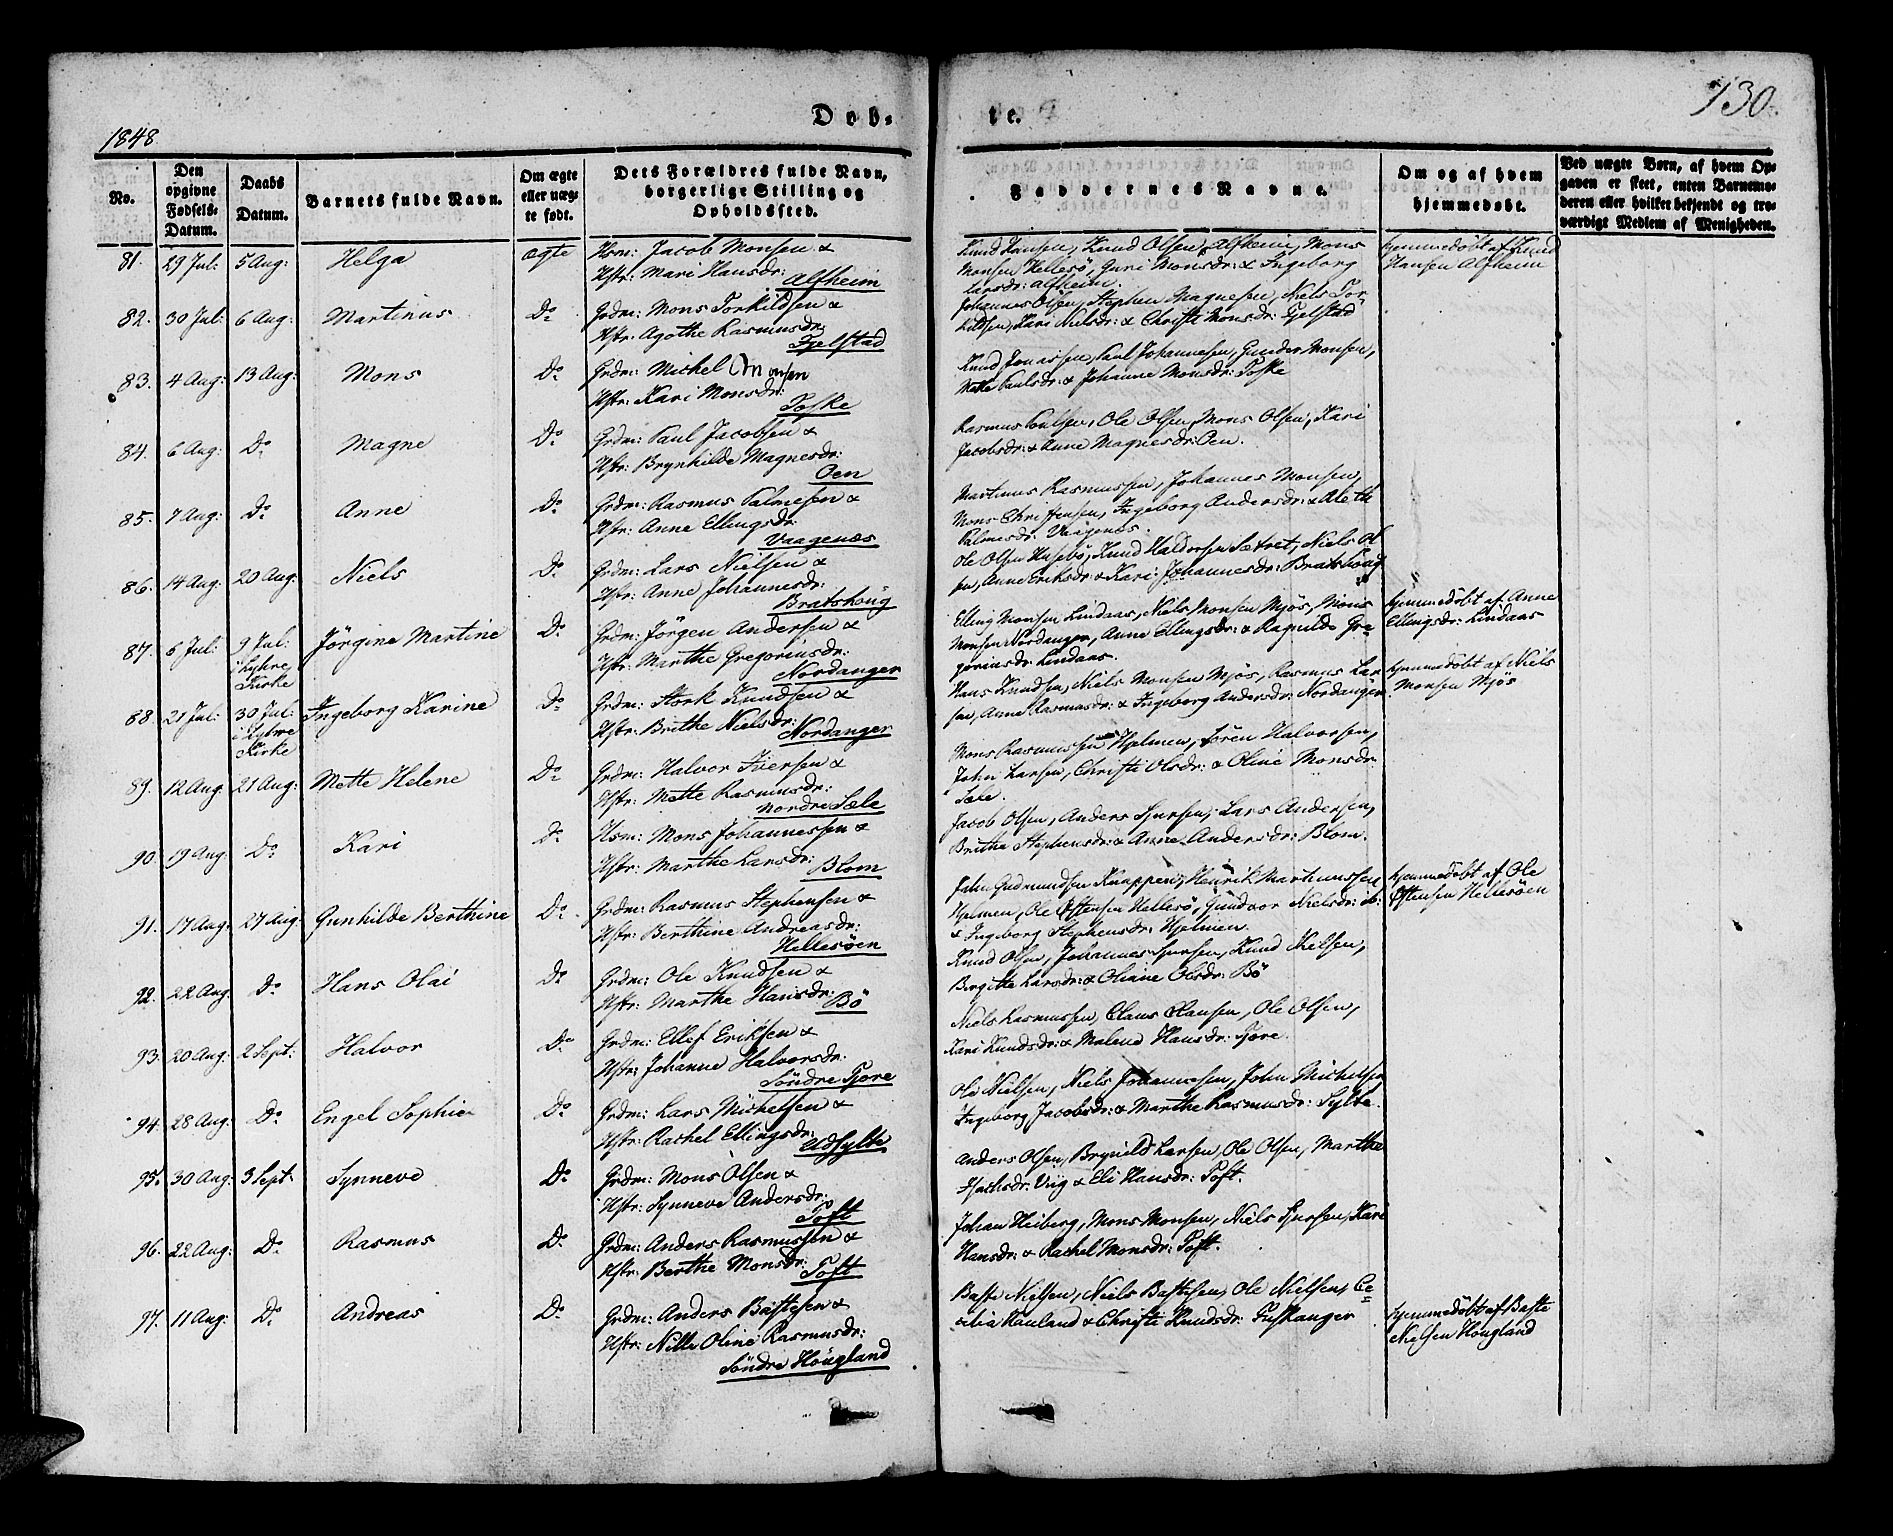 1848.
Døb-
te.
130.
No.
Den opgivne Fødsels-Datum.
Daabs Datum.
Barnets fulde Navn.
Om ægte eller uægte født.
Dets Forældres fulde Navn, borgerlige Stilling og Opholdssted.
Faddernes Navne.
Om og af hvem hjemmedøbt.
Ved uægte Børn, af hvem Opgaven er skeet, enten Barnemoderen eller hvilket bekjendt og troværdigt Medlem af Menigheden.
81. 29 Jul: 5 Aug: Helga ægte Hsm: Jacob Monsen &
Hstr: Mari Hansdr:
Alfheim
Knud Hansen, Knud Olsen, Alfheim, Mons
Monsen Hellesø, Guri Monsdr: & Ingeborg
Larsdr: Alfheim.
hjemmedøbt af Knud
Hansen Alfheim
82. 30 Jul: 6 Aug: Martinus Do Grdm: Mons Torkildsen &
Hstr: Agothe Rasmusdr:
Fjelstad
Johannes Olsen, Stephen Magnesen, Niels Tor-
kildsen, Kari Nielsdr: & Christi Monsdr: Fjelstad
83. 4 Aug: 13 Aug: Mons Do Grdm: Michel Monsen
Hstr: Kari Monsdr:
Toske
Knud Jonassen, Paul Johannesen, Gunder Monsen,
Mette Paulsdr: & Johanne Monsdr: Toske
84. 6 Aug: Do Magne Do Grdm: Paul Jacobsen &
Hstr: Brynhilde Magnesdr:
Oen
Rasmus Paulsen, Ole Olsen, Mons Olsen, Kari
Jacobsdr: & Anne Magnesdr: Oen.
85. 7 Aug: Do Anne Do Grdm: Rasmus Palmesen &
Hstr: Anne Ellingsdr:
Vaagenæs
Martinus Rasmussen, Johannes Monsen,
Mons Christensen, Ingeborg Andersdr: &
Palmesdr: Vaagenæs.
86. 14 Aug: 20 Aug: Niels Do Grdm: Lars Nielsen &
Hstr: Anne Johannesdr:
Bratshoug
Ole Olsen Husebø, Knud Haldorsen Sætret, Niels Ol
sen, Anne Eriksdr: & Kari Johannesdr: Bratshoug
87. 6 Jul: 9 Jul: i Lyhre Kirke Jörgine Martine Do Grdm: Jörgen Andersen &
Hstr: Marthe Gregoriusdr:
Nordanger
Elling Monsen Lindaas, Niels Monsen Mjös, Mons
Monsen Nordanger, Anne Ellingsdr: & Ragnilde Gre-
goriusdr: Lindaas.
hjemmedöbt af Anne
Ellingsdr: Lindaas
88. 21 Jul: 30 Jul: i Lyhre Kirke Ingeborg Karine Do Grdm: Stork Knudsen &
Hstr: Brithe Nielsdr:
Nordanger
Hans Knudsen, Niels Monsen Mjös, Rasmus Lar
sen, Anne Rasmusdr: & Ingeborg Andersdr: Nordanger
hjemmedöbt af Niels
Monsen Mjös
89. 12 Aug: 21 Aug: Mette Helene Do Grdm: Halvor Iversen &
Hstr: Mette Rasmusdr:
Nordre Sæle
Mons Rasmussen Hjelmen, Sören Halvorsen,
John Larsen, Christi Olsdr: & Oline Monsdr:
Sæle.
90. 19 Aug: Do Kari Do Hsm: Mons Johannessen &
Hstr: Marthe Larsdr:
Blom
Jacob Olsen, Anders Sjursen, Lars Andersen,
Brithe Stephensdr: & Anne Andersdr: Blom.
91. 17 Aug: 27 Aug: Gunhilde Berthine Do Grdm: Rasmus Stephensen &
Hstr: Berthine Andreasdr:
Hellesöen
John Gudmundsen Knappen, Henrik Martinussen
Hjelmen, Ole Östensen Hellesö, Gundvor Nielsdr: ib:
& Ingeborg Stephensdr: Hjelmen.
hjemmedöbt af Ole
Östensen Hellesöen
92. 22 Aug: Do Hans Olai Do Grdm: Ole Knudsen &
Hstr: Marthe Hansdr:
Bö
Knud Olsen, Johannes Sjursen, Knud Nielsen,
Birgitte Larsdr: & Oliane Olsdr: Bö
93. 20 Aug: 2 Sept: Halvor Do Grdm: Ellef Eriksen &
Hstr: Johanne Halvorsdr:
Söndre Tjore
Niels Rasmussen, Claus Clausen, Ole Olsen,
Kari Knudsdr: & Malene Hansdr: Tjore.
94. 28 Aug: Do Engel Sophie Do Grdm: Lars Michelsen &
Hstr: Rachel Ellingsdr:
UdSylte
Ole Nielsen, Niels Johannesen, John Michelsen
Ingeborg Jacobsdr: & Marthe Rasmusdr: Sylte.
95. 30 Aug: 3 Sept: Synneve Do Grdm: Mons Olsen &
Hstr: Synneve Andersdr:
Toft
Anders Olsen, Brynild Larsen, Ole Olsen, Marthe
Isachsdr: Vüg & Eli Hansdr: Toft.
96. 22 Aug: Do Rasmus Do Grdm: Anders Rasmussen &
Hstr: Berthe Monsdr:
Toft
Johan Heiberg, Mons Monsen, Niels Sjursen, Kari
Hansdr: & Rachel Monsdr: Toft.
97. 11 Aug: Do Andreas Do Grdm: Anders Bastesen &
Hstr: Nille Oline Rasmusdr:
Söndre Hougland
Baste Nielsen, Niels Bastesen, Ole Nielsen, Ce-
cilia Hauland & Christi Knudsdr: Fuskanger
hjemmedöbt af Baste
Nielsen Hougland